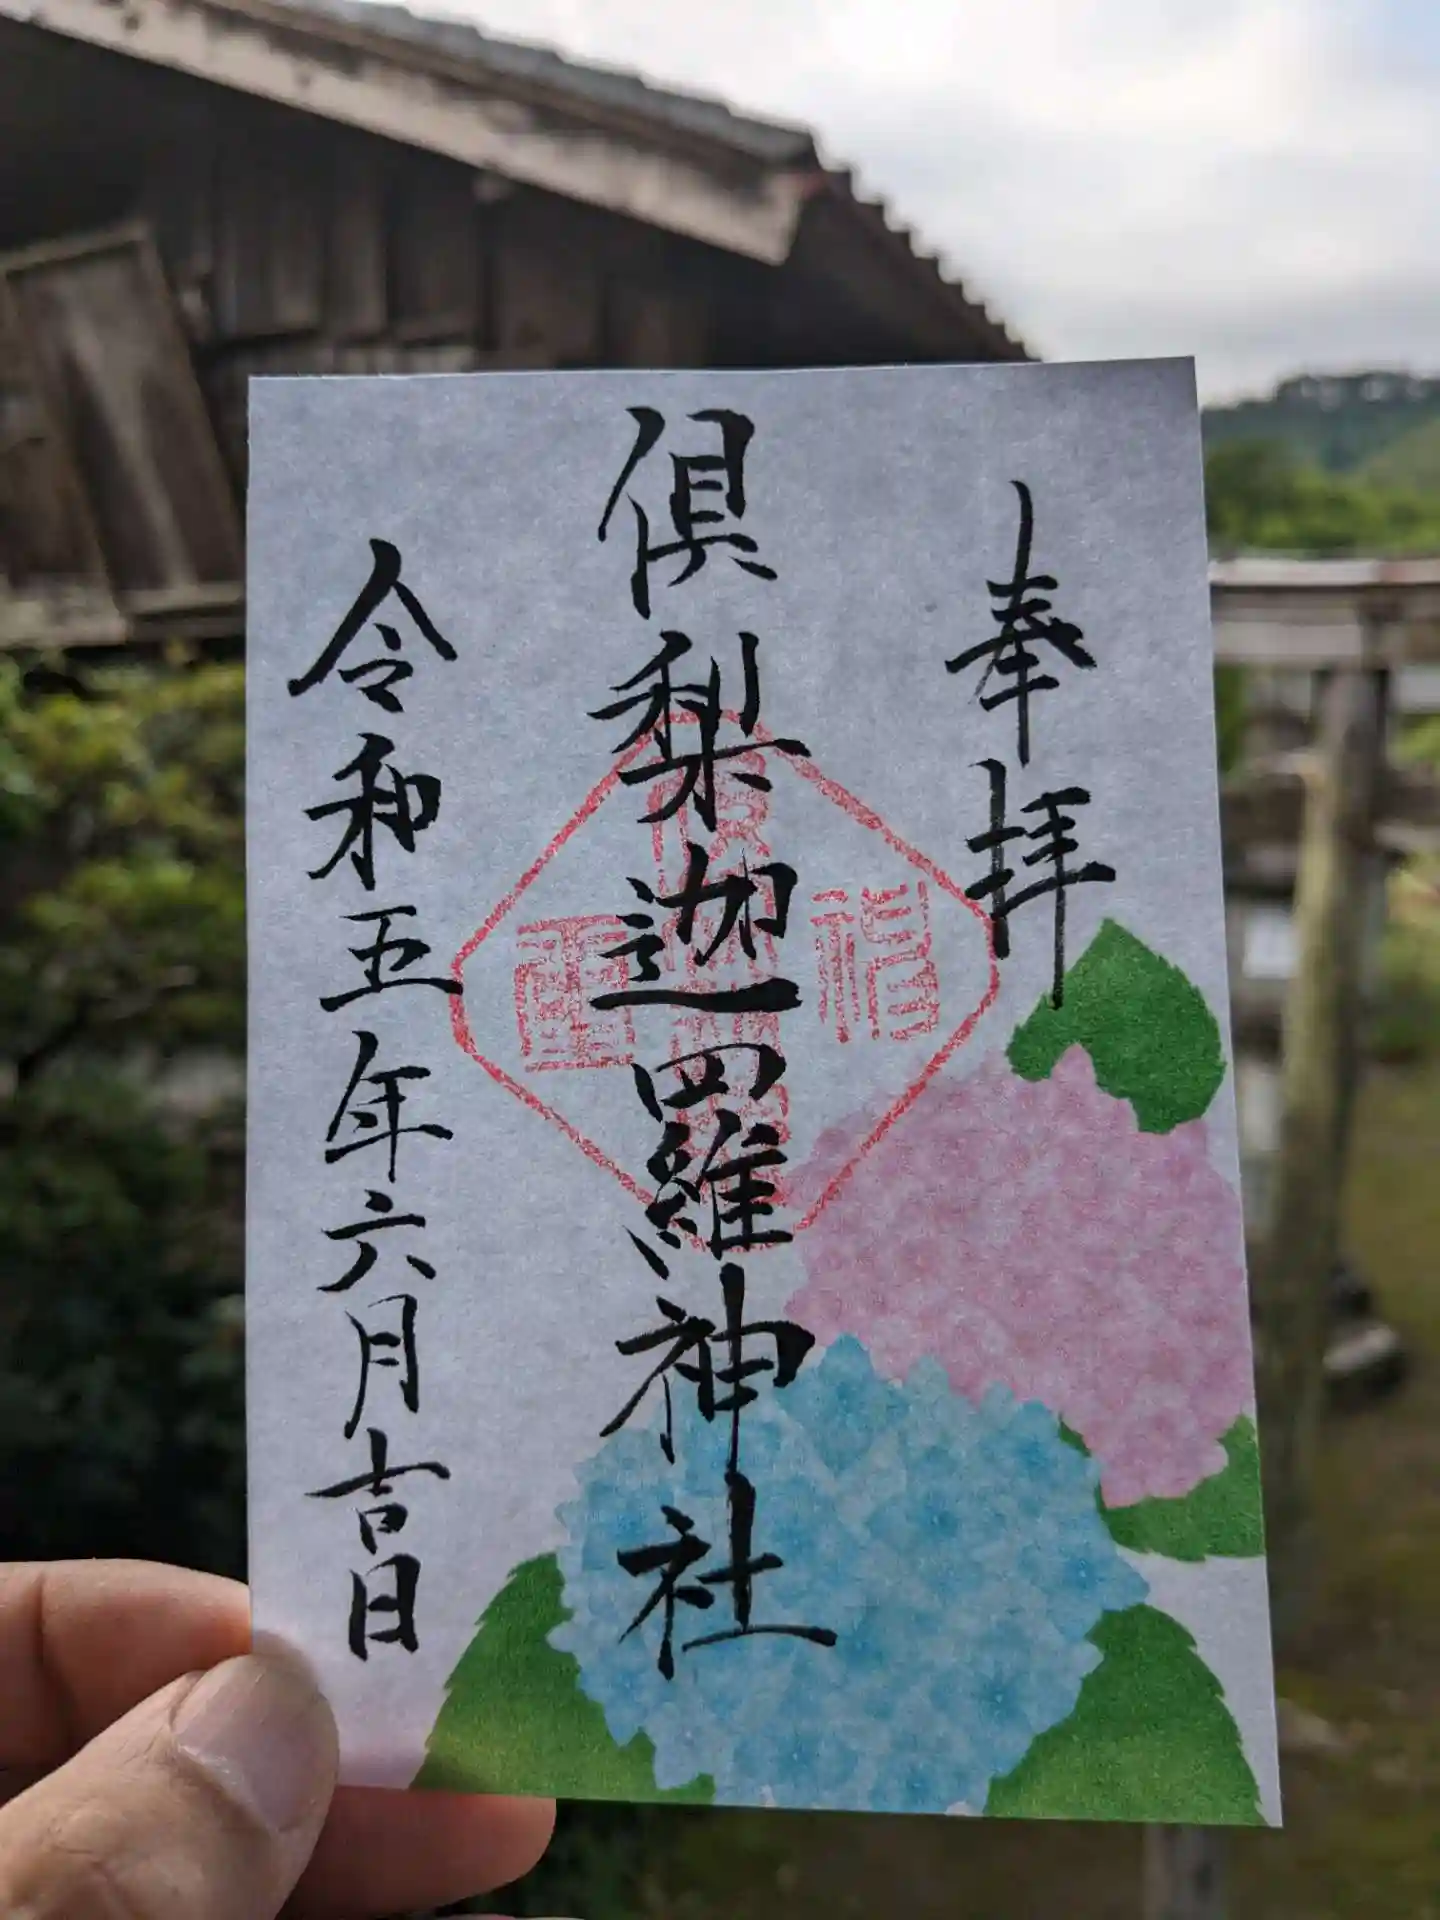 奉拝
倶梨迦羅神社
令和五年六月吉日
福